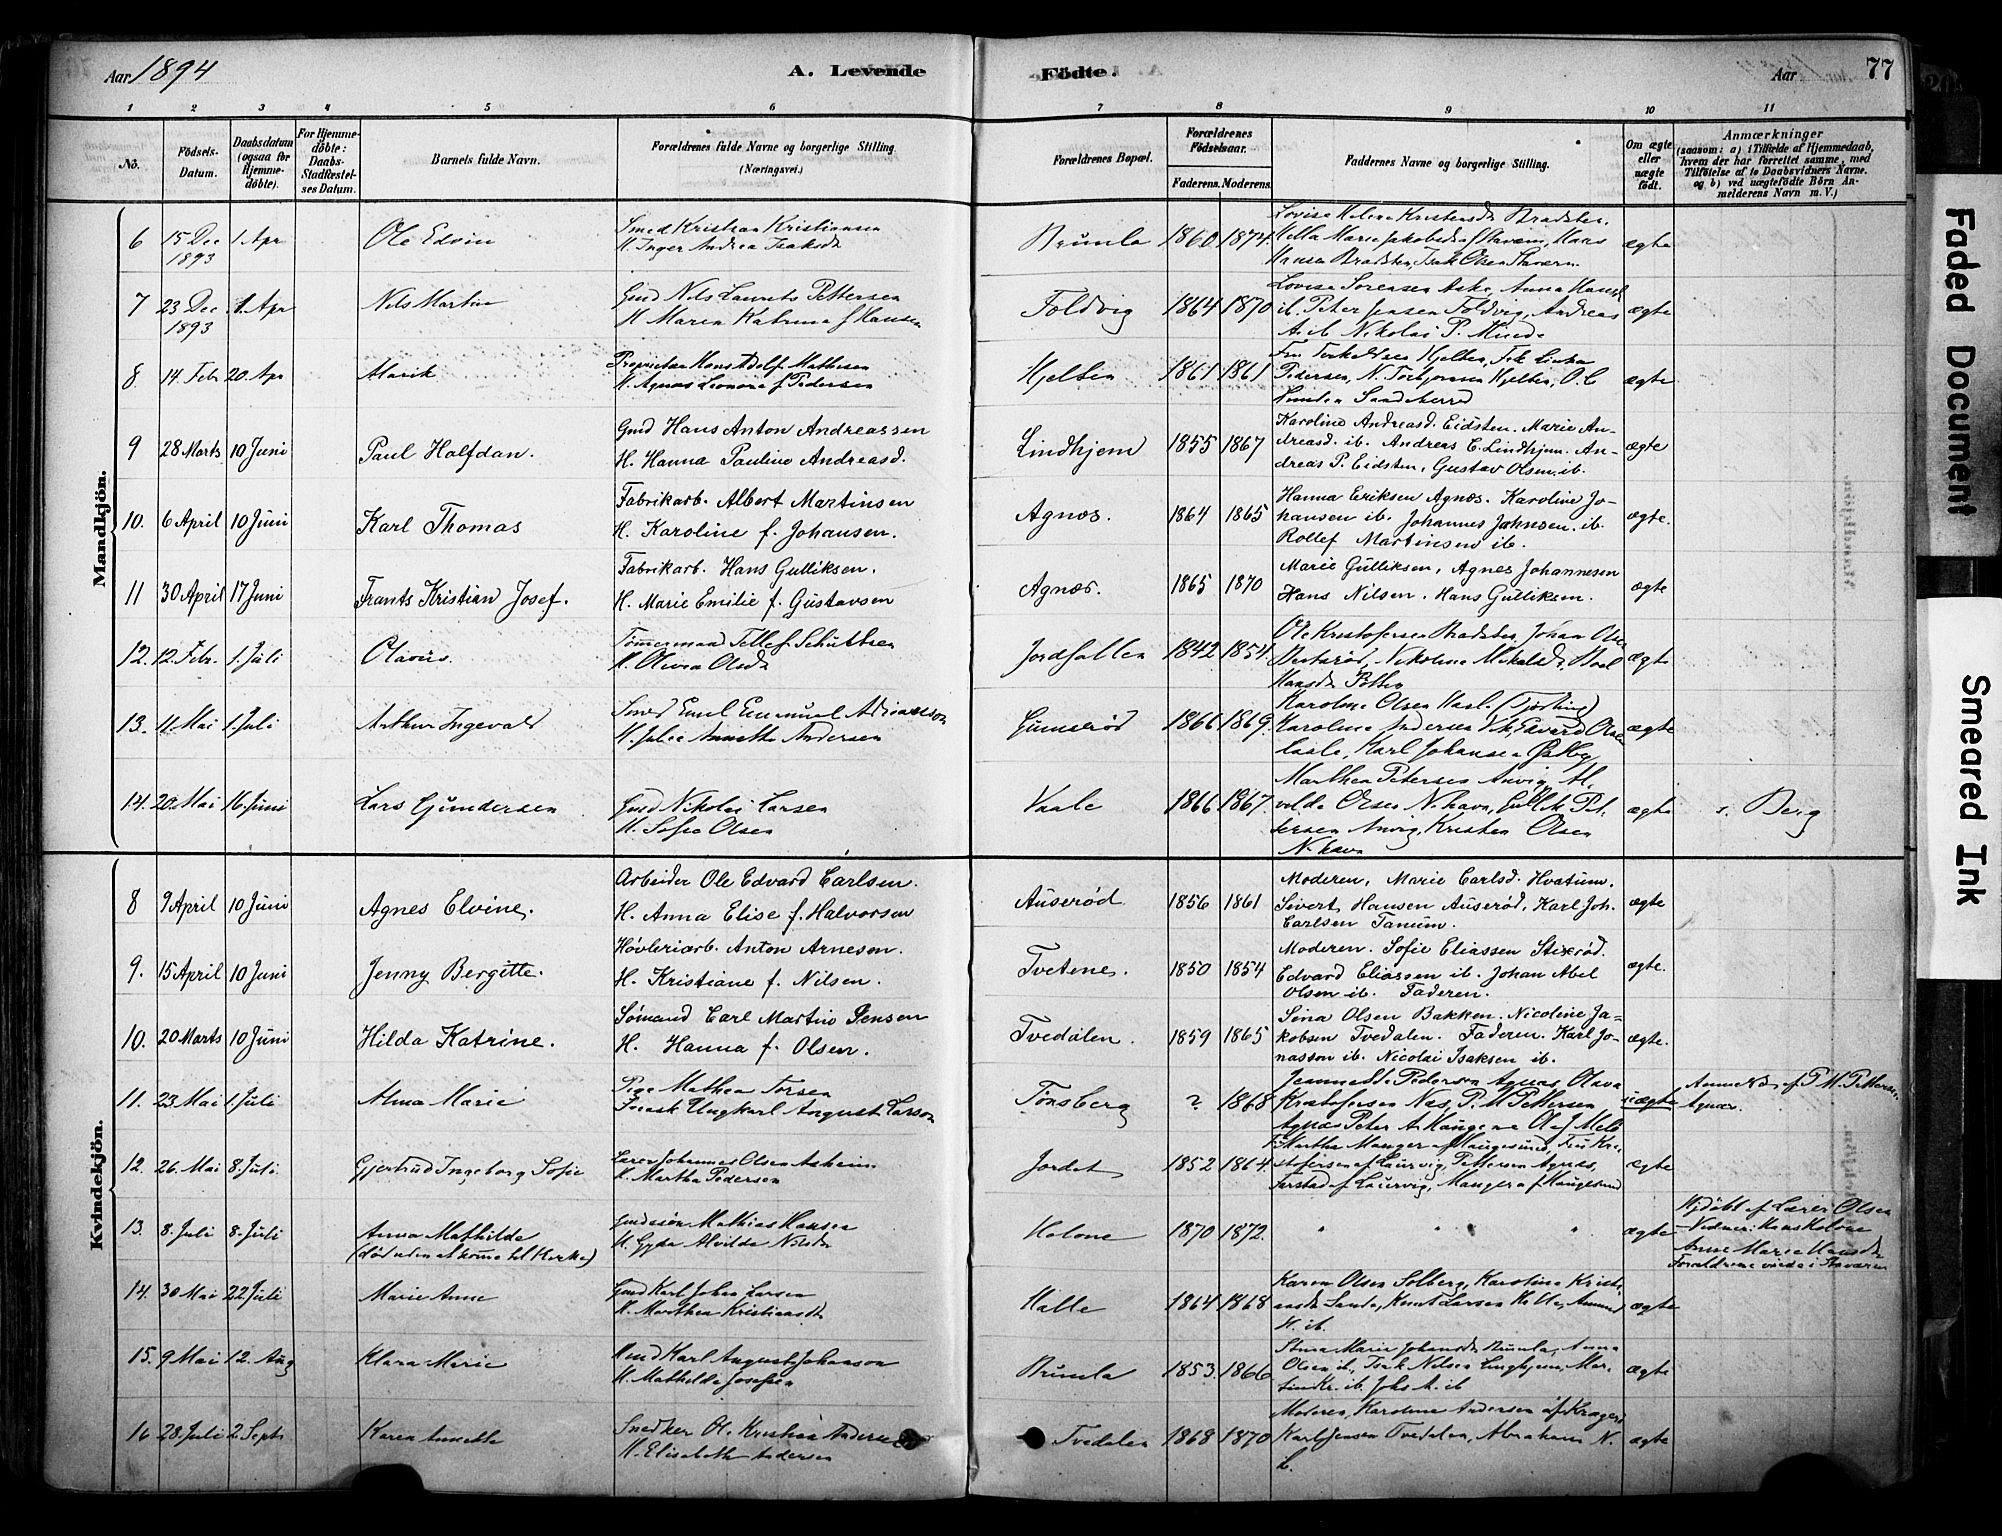 Aar 1894
A. Levende
Födte.
Aar
77
1 2 3 4 5 6 7 8 9 10 11
No.
Födsels-Datum.
Daabsdatum (ogsaa for Hjemme-døbte).
For Hjemme-døbte: Daabs-Stadfæstel-ses Datum.
Barnets fulde Navn.
Forældrenes fulde Navne og borgerlige Stilling. (Næringsvei.)
Forældrenes Bopæl.
Forældrenes Födselsaar.
Faderens. Moderens.
Faddernes Navne og borgerlige Stilling.
Om ægte eller uægte født.
Anmærkninger
(saasom: a) i Tilfælde af Hjemmedaab, hvem der har forrettet samme, med Tilföielse af to Daabsvidners Navne. og b) ved uægtefödte Börn Anmelderens Navn m. V.)
Mandkjön.
6 15 Dec 1893 1 Apr Ole Edvin
Smed Kristian Kristiansen
H. Inger Andrea Isaksdt
Brunla 1860 1874
Lovise Helene Kristensdt Bradsten.
Hella Marie Jakobsdt af Stavern, Hans
Hansen Bradsten, Isak Olsen Stavern
ægte
7 23 Dec 1893 1 Apr Nils Martin
Gmd Nils Laurits Pettersen
H Maren Katrine f Hansen
Foldvig 1864 1870
Lovise Sørensen Aske, Anna Hansd
ib. Peter Jensen Foldvig, Andreas
A. ib Nikolai P. Minde
ægte
8 14 Febr 20 Apr Alarik
Proprietær Hans Adolf Mathisen
H. Agnes Leonora f Pedersen
Hjelten 1861 1861
Pedersen, N. Torbjørnsen Hjelten, O. C
Sandeherred
ægte
9 28 Marts 10 Juni Paul Halfdan.
Gmd Hans Anton Andreassen
H. Hanna Pauline Andreasd.
Lindhjem 1855 1867
Karoline Andreasd. Eidsten. Marie An-
dreasd. ib. Andreas C. Lindhjem. An-
dreas P. Eidsten, Gustav Olsen ib.
ægte
10. 6 April 10 Juni Karl Thomas
Fabrikarb. Albert Martinsen
H. Karoline f. Johansen.
Agnæs. 1864 1865
Hanna Eriksen Agnæs. Karoline Jo-
hansen ib. Johannes Johnsen. ib.
Rollef Martinsen ib.
ægte.
11 30 April 17 Juni Frants Kristian Josef.
Fabrikarb. Hans Gulliksen.
H. Marie Emilie f. Gustavsen
Agnæs. 1865 1870
Marie Gulliksen, Agnes Johannesen
Hans Nilsen. Hans Gulliksen.
ægte
12. 12. Febr. 1. Juli Olaves.
Tømmermand Tellef Schultsen
H. Olivia Olsdt
Jordfallen 1842 1854
Ole Kristofersen Bradsten, Johan Olsen
ægte
13. 11. Mai 1. Juli Arthur Ingevald
Smed Emil Emanuel Adriansson
H. Julie Annette Andersen
Gumserød 1866 1869.
Karoline Olsen Hasle (Tjølling)
ægte
14. 20. Mai 16. Juni Lars Gundersen
Gmd Nikolai Larsen
H. Sofie Olsen
Vaale 1866 1867.
Marthea Petersen Anvig, Al-
vilde Olsen N.havn, Gullik Pet-
tersen Anvig, Kristen Olsen
N.havn
ægte s. Berg
Kvindekjön.
8 9 April 10 Juni Agnes Elvine.
Arbeider Ole Edvard Carlsen.
H. Anna Elise f. Halvorsen
Auserød 1856 1861
Moderen, Marie Carlsd. Hvatum,
Sivert Hansen Auserød, Karl Joh.
Carlsen Tanum.
ægte
9. 15 April 10 Juni Jenny Bergitte.
Høvleriarb. Anton Arnesen.
H. Kristiane f. Nilsen.
Tvetene. 1850 1854
Moderen. Sofie Eliassen Stixrød.
Edvard Eliassen ib. Johan Abel
Olsen ib. Faderen.
ægte.
10. 20 Marts 10 Juni Hilda Katrine.
Sømand Carl Martin Jensen
H. Hanna f. Olsen.
Tvedalen. 1859 1865
Sina Olsen Bakken. Nicoline Ja-
kobsen Tvedalen. Faderen. Karl Jo-
nassen ib. Nicolai Isaksen ib.
ægte.
11. 23 Mai 1. Juli Alma Marie
Pige Mathea Torsen
Svensk Ungkarl August Larsson
Tønsberg ? 1868
Jeannette Pedersen Agnæs, Olava
Kristofersen Næs, P. M Pettersen
uægte
Anmeldt af P. M. Pettersen,
Agnæs.
12. 26. Mai 8. Juli Gjertrud Ingeborg Sofie
Lærer Johannes Olsen Aaheim
H. Martha Pedersen
Jordet 1852 1864
Martha Manger af Haugesund, Fru Kri-
stofersen af Laurvig, Pettersen Agnæs,
Farstad af Laurvig, Manger af Haugesund
ægte
13. 8. Juli 8. Juli Anna Mathilde
(død uden at komme til Kirke)
Gmdssøn Mathias Hansen
H. Gyda Alvilde Nilsdt
Holone 1870 1872.
" " "
ægte
Hjdøbt af Lærer Olsen
Vidner: Hans Holone
Anne Marie Hansdt
Forældrene viede i Stavern
14. 30 Mai 22. Juli Marie Anne
Gmd Karl Johan Larsen
H. Marthea Kristiansdt
Halle 1864 1868
Karen Olsen Solberg, Karoline Kristi-
ansdt Sande, Knut Larsen Halle, Amund
H. ib.
ægte
15. 9 Mai 12. Aug Klara Marie
Gmd Karl August Johansen
H. Mathilde Josefsen
Brunla 1853. 1866
Stina Marie Johansdt Brunla, Anna
Olsen ib, Isak Nilsen Linghjem, Mar-
tin Kr. ib. Johs A. ib
ægte
16 28. Juli 2 Septr Karen Annette
Snedker Ole Kristian Andersen
H. Elisabeth Andersen
Tvedalen 1868 1870
Moderen, Karoline Andersen af Kragerø
Karl Jensen Tvedalen, Abraham N.
ib.
ægte
Faded Document
Smeared Ink